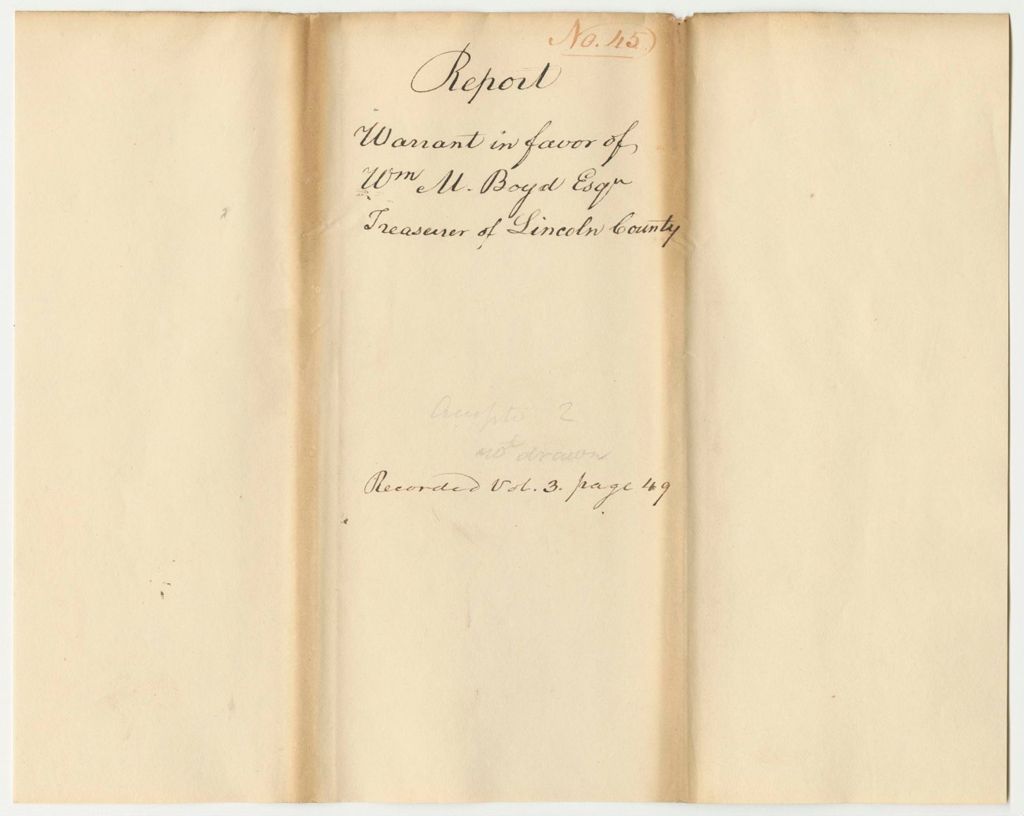 No. 45)
Report
Warrant in favor of
Wm M. Boyd Esqr
Treasurer of Lincoln County
2
not drawn
Recorded Vol. 3. page 49